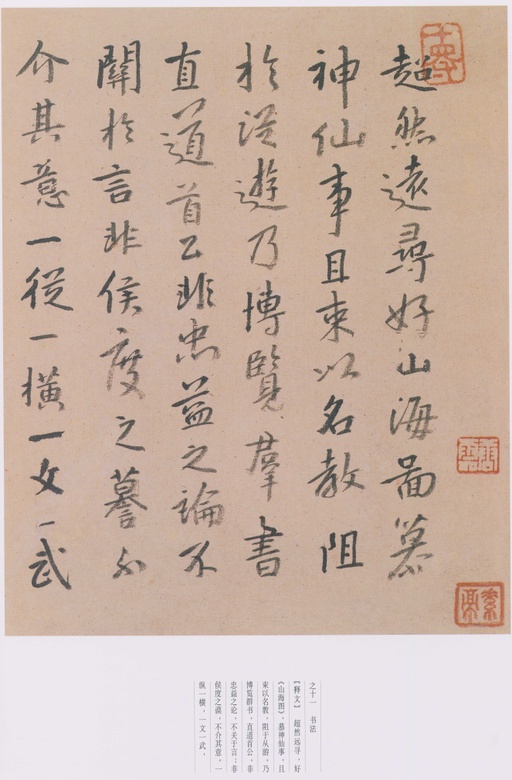 超然遠尋好山海啚慕
神仙事且束以名教阻
於從遊乃博覽羣書
直道首公非忠益之論不
關於言非侯度之謩不
介其意一從一橫一文一武
之十一　书法
【释文】　超然远寻，好
《山海图》，慕神仙事，且
束以名教，阻于从游，乃
博览群书，直道首公，非
忠益之论，不关于言；非
侯度之谟，不介其意，一
纵一横，一文一武，